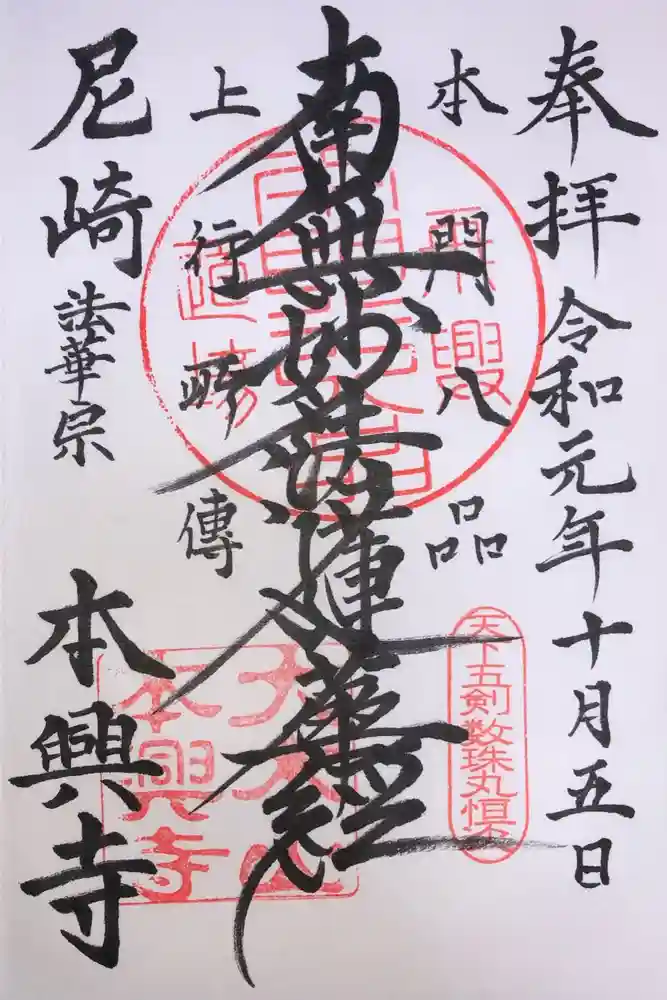 奉拝 令和元年十月五日
本門八品
南無妙法蓮華経
上行所傳
尼崎 法華宗
本興寺
天下五剣数珠丸恒次
本興寺